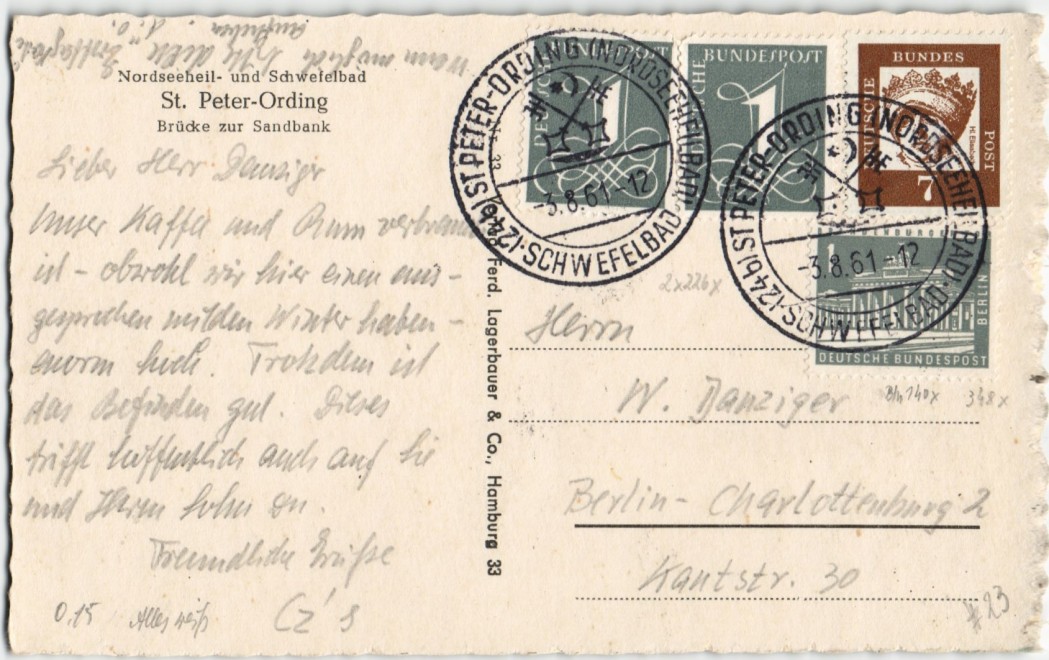 Wenn möglich bitte alle "
aufheben. D. O.
Nordseeheil- und Schwefelbad
St. Peter-Ording
Brücke zur Sandbank
Lieber Herr Danziger
Unser Kaffee und Rum verbrauch
ist - obwohl wir hier einen aus-
gesprochen milden Winter haben -
enorm hoch. Trotzdem ist
das Befinden gut. Dieses
trifft hoffentlich auch auf Sie
und Ihren Sohn zu.
Freundliche Grüße
0.15 Alles weiß
Ferd. Lagerbauer & Co., Hamburg 33
DEUTSCHE BUNDESPOST
1
BUNDESPOST
1
DEUTSCHE BUNDES POST
Hl. Elisabeth
7
1
BERLIN
DEUTSCHE BUNDESPOST
(24b) ST PETER-ORDING (NORDSEEHEILBAD)
-3.8.61-12
SCHWEFELBAD
(24b) ST PETER-ORDING (NORDSEEHEILBAD)
-3.8.61-12
SCHWEFELBAD
2x226x
Herrn
W. Danziger
Bln 140x 348x
Berlin-Charlottenburg 2
Kantstr. 30
23